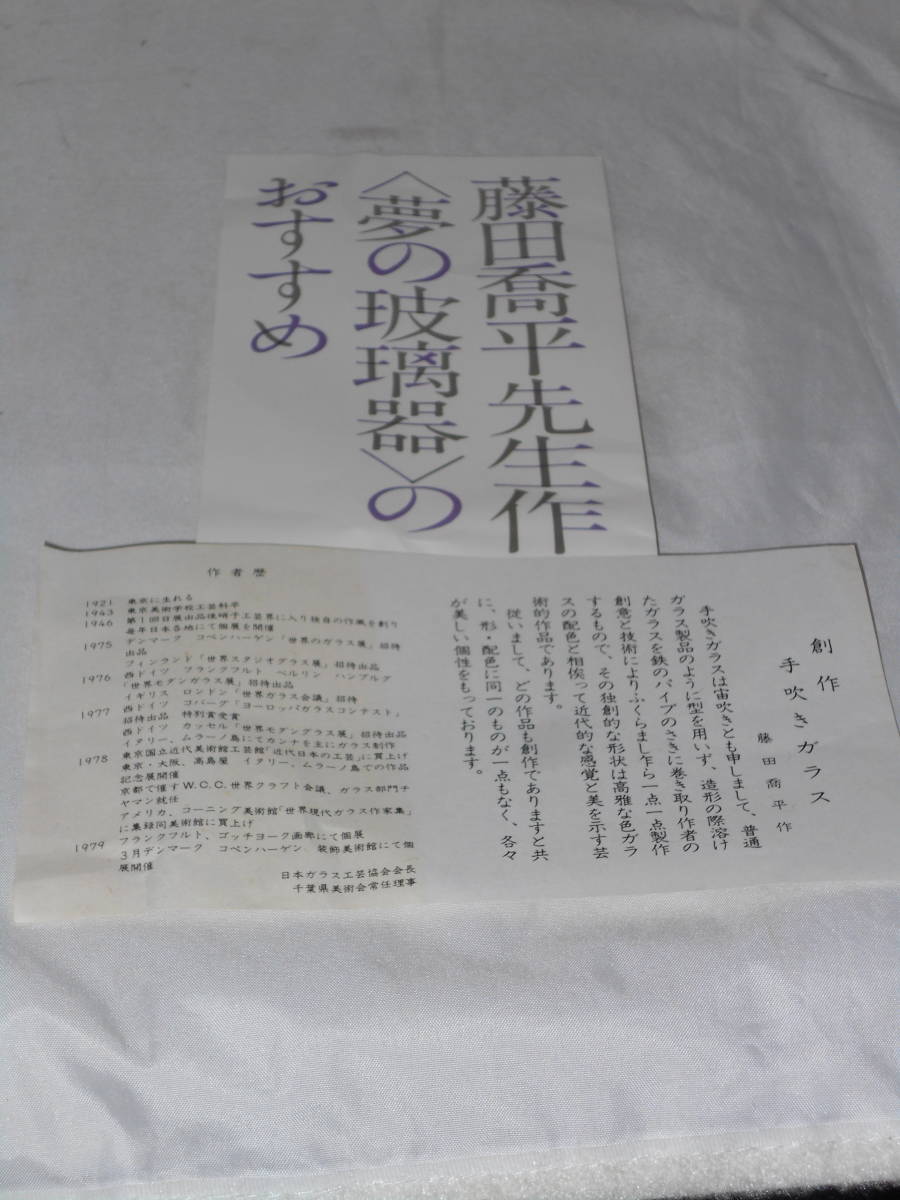 藤田喬平先生作
〈夢の玻璃器〉の
おすすめ
創作
手吹きガラス
藤田喬平作
手吹きガラスは宙吹きとも申しまして、普通
ガラス製品のように型を用いず、造形の際溶け
たガラスを鉄のパイプのさきに巻き取り作者の
創意と技術によりふくらまし乍ら一点一点製作
するもので、その独創的な形状は高雅な色ガラ
スの配色と相俟って近代的な感覚と美を示す芸
術的作品であります。
従いまして、どの作品も創作でありますと共
に、形・配色に同一のものが一点もなく、各々
が美しい個性をもっております。
作者歴
1921 東京に生れる
1943 東京美術学校工芸科卒
1946 第1回日展出品後硝子工芸界に入り独自の作風を創り
毎年日本各地にて個展を開催
1975 デンマーク コペンハーゲン「世界のガラス展」招待
出品
フィンランド「世界スタジオグラス展」招待出品
1976 西ドイツ フランクフルト ベルリン ハンブルグ
「世界モダンガラス展」招待出品
イギリス ロンドン「世界ガラス会議」招待
1977 西ドイツ コバーグ「ヨーロッパガラスコンテスト」
招待出品 特別賞受賞
西ドイツ カッセル「世界モダングラス展」招待出品
イタリー、ムラーノ島にてカンナを主にガラス制作
1978 東京国立近代美術館工芸館「近代日本の工芸」に買上げ
東京・大阪、高島屋 イタリー、ムラーノ島での作品
記念展開催
京都で催すW.C.C.世界クラフト会議、ガラス部門チ
ヤマン就任
アメリカ、コーニング美術館「世界現代ガラス作家集」
に集録同美術館に買上げ
フランクフルト、ゴッチヨーク画廊にて個展
1979 3月デンマーク コペンハーゲン 装飾美術館にて個
展開催
日本ガラス工芸協会会長
千葉県美術会常任理事